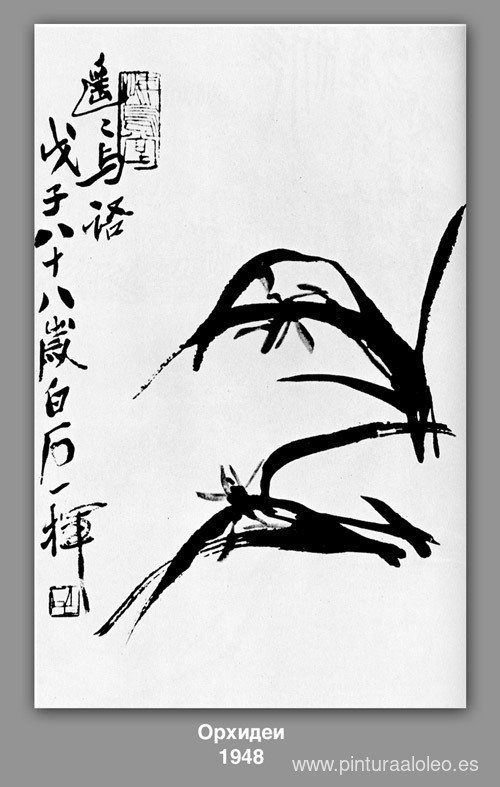 遥々与語
戊子八十八歲白石一揮
Орхидеи
1948
www.pinturaaloleo.es